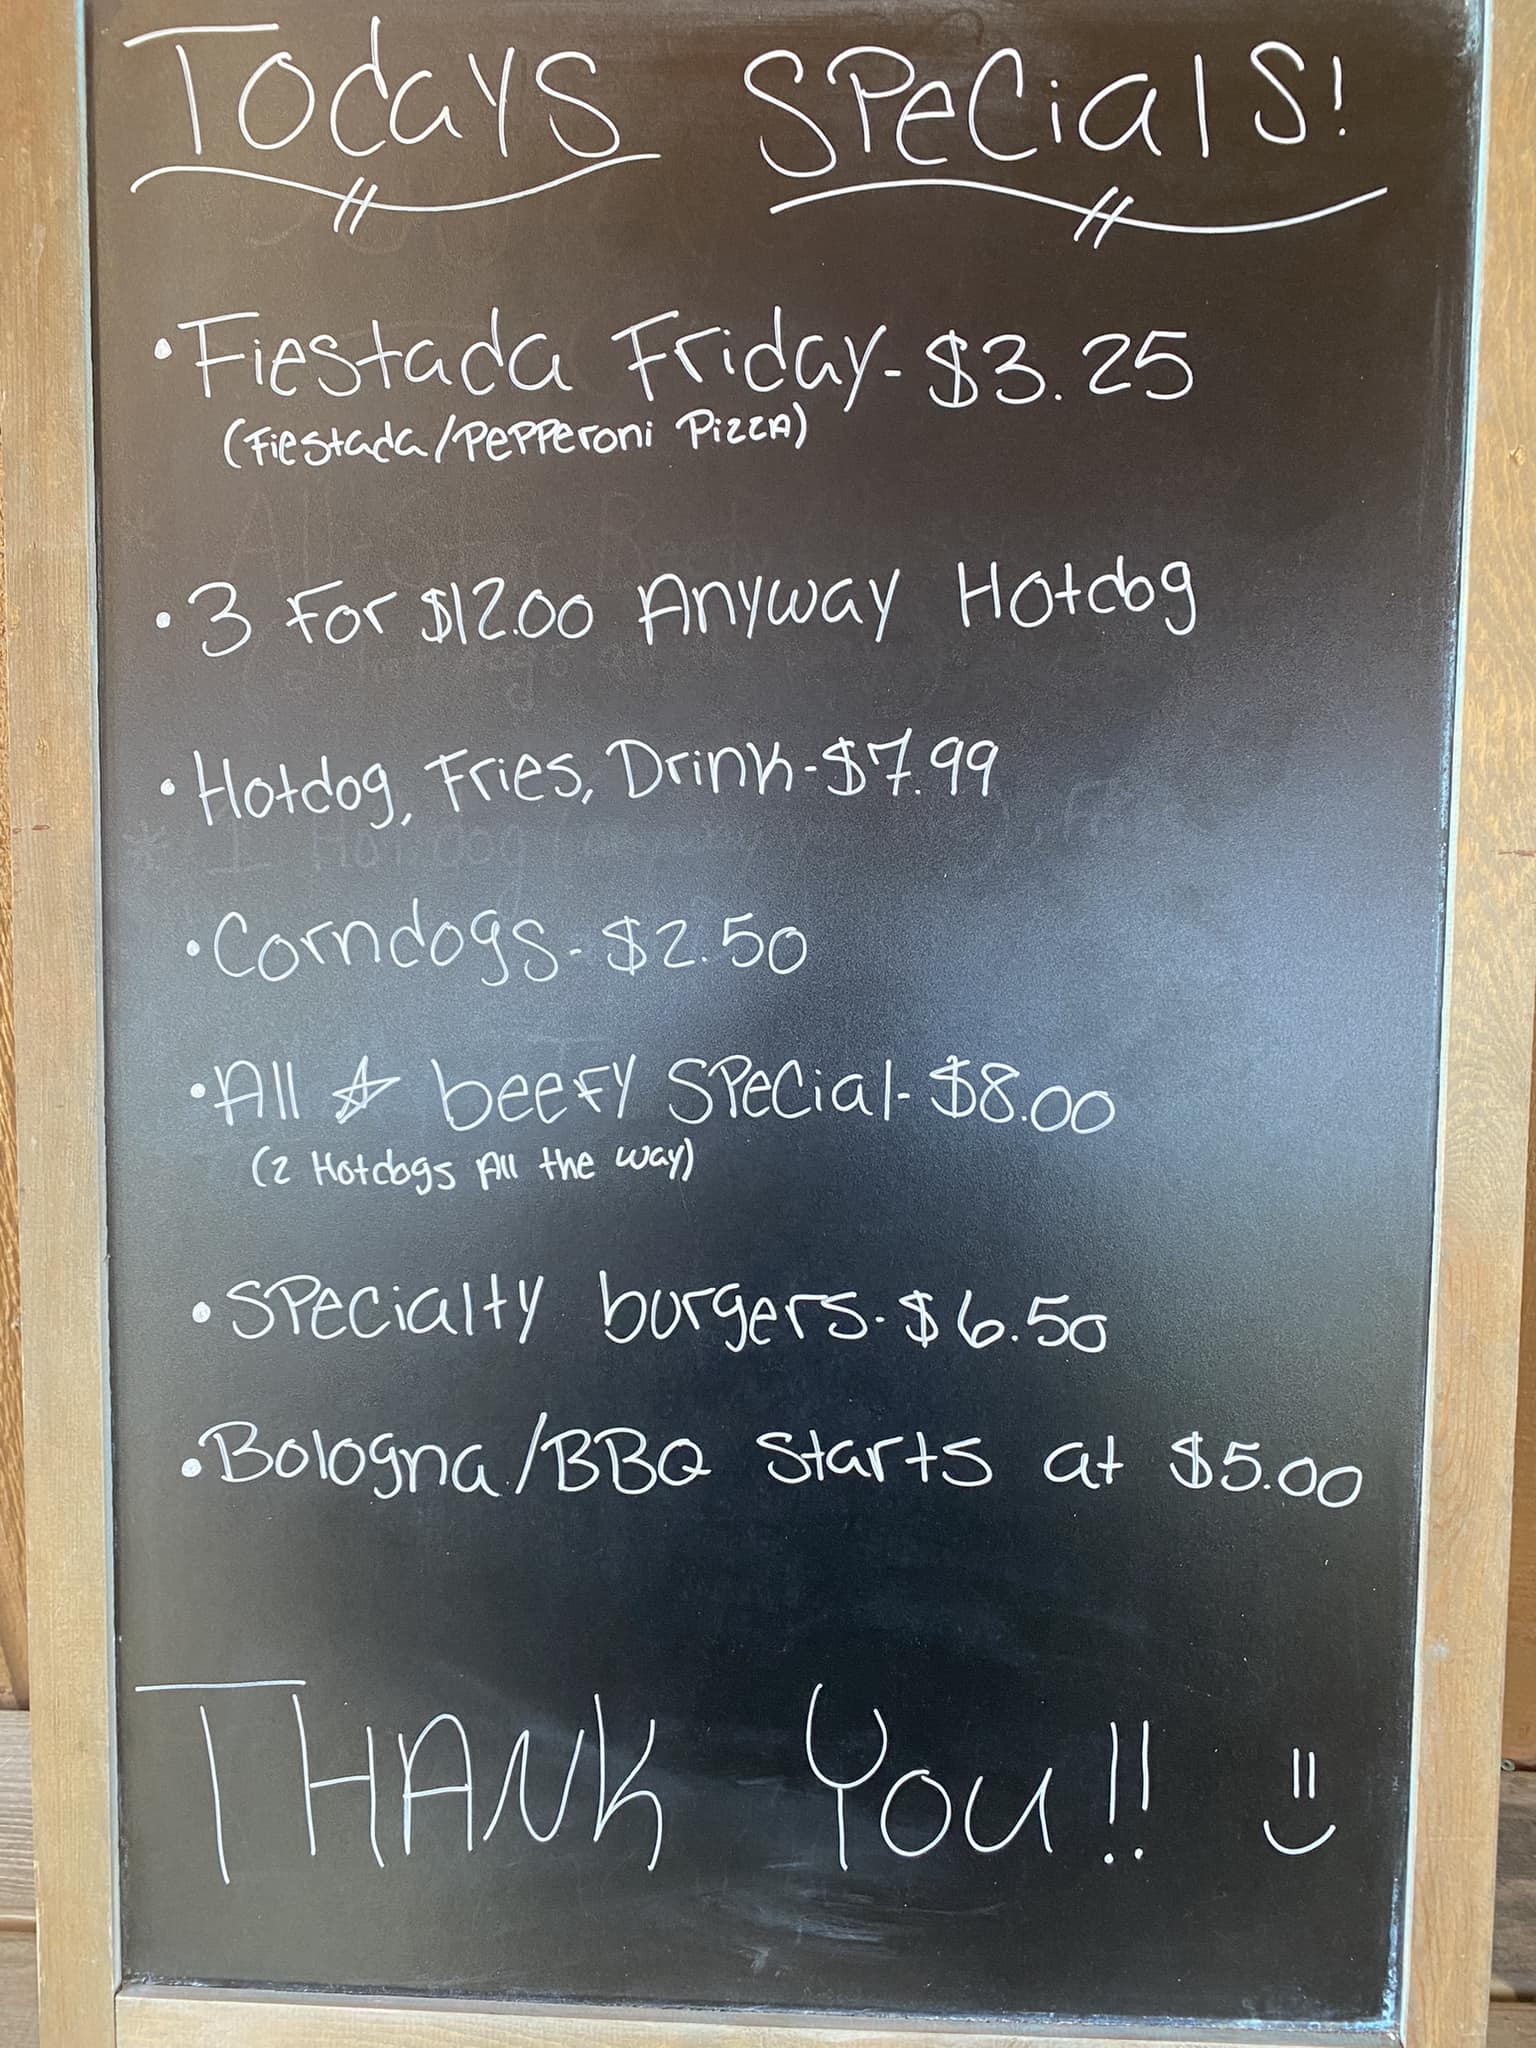 Todays Specials!
• Fiestada Friday - $3.25
(Fiestada/Pepperoni Pizza)
• 3 For $12.00 Anyway Hotdog
• Hotdog, Fries, Drink - $7.99
• Corndogs - $2.50
• All ☆ beefy Special - $8.00
(2 Hotdogs All the way)
• Specialty burgers - $6.50
• Bologna/BBQ Starts at $5.00
THANK You!!